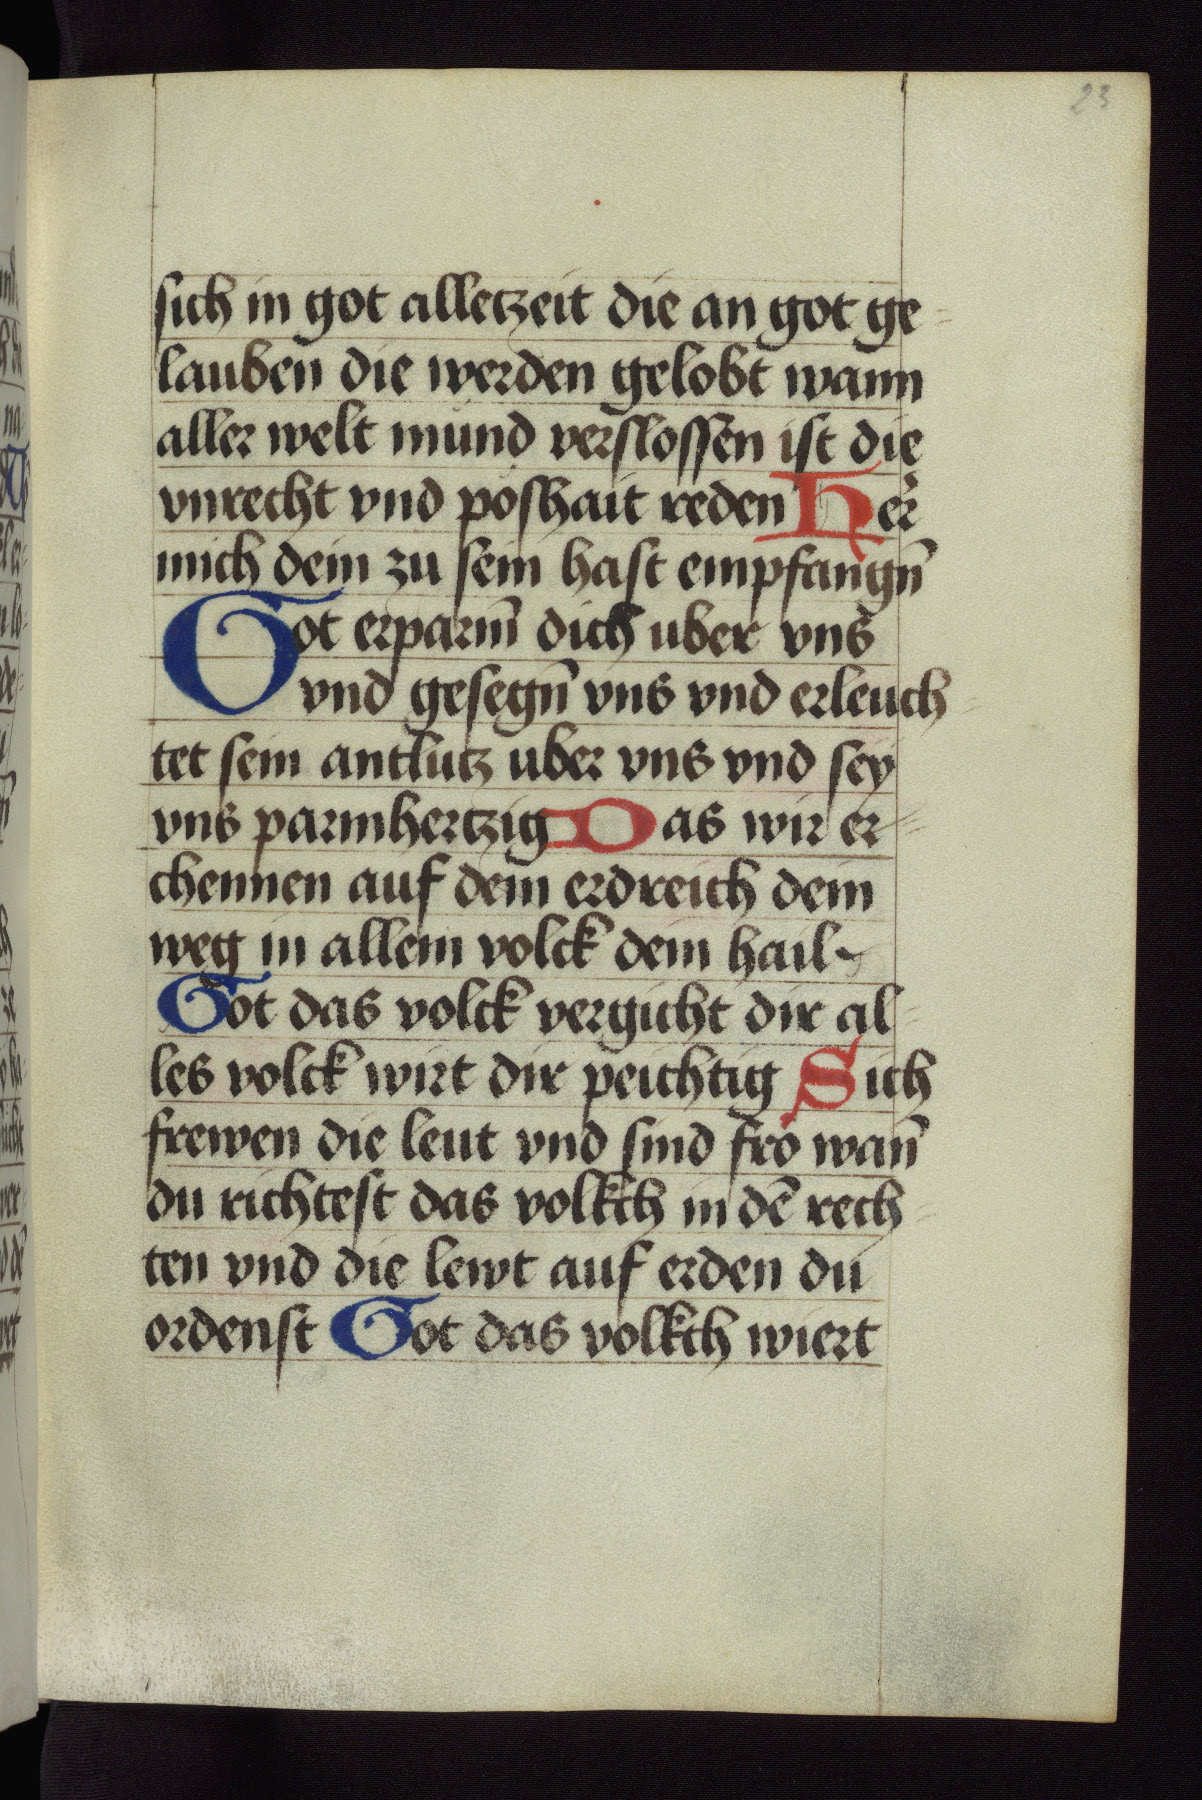 23
sich in got alletzeit die an got ge-
lauben die werden gelobt wann
aller welt mund verslossen ist die
vnrecht vnd poshait reden Her
mich dein zu sein hast empfangn̄
Got erparm̄ dich uber vns
vnd gesegn̄ vns vnd erleuch-
tet sein antlutz uber vns vnd sey
vns parmhertzig Das wir er-
chennen auf dem erdreich dein
weg in allem volck dein hail
Got das volck vergicht dir al-
les volck wirt dir peichtig Sich
frewen die leut vnd sind fro wan̄
du richtest das volkch in dē rech-
ten vnd die lewt auf erden du
ordenst Got das volkch wiert